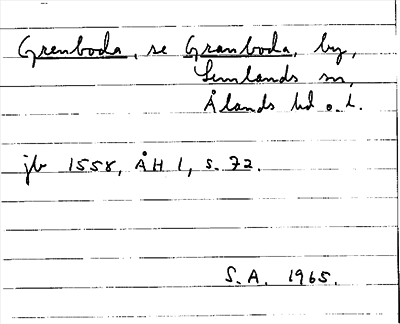 Grenboda, se Granboda, by,
Lemlands sn,
Ålands hd o. l.
jb 1558, ÅH 1, s. 72.
S.A. 1965.